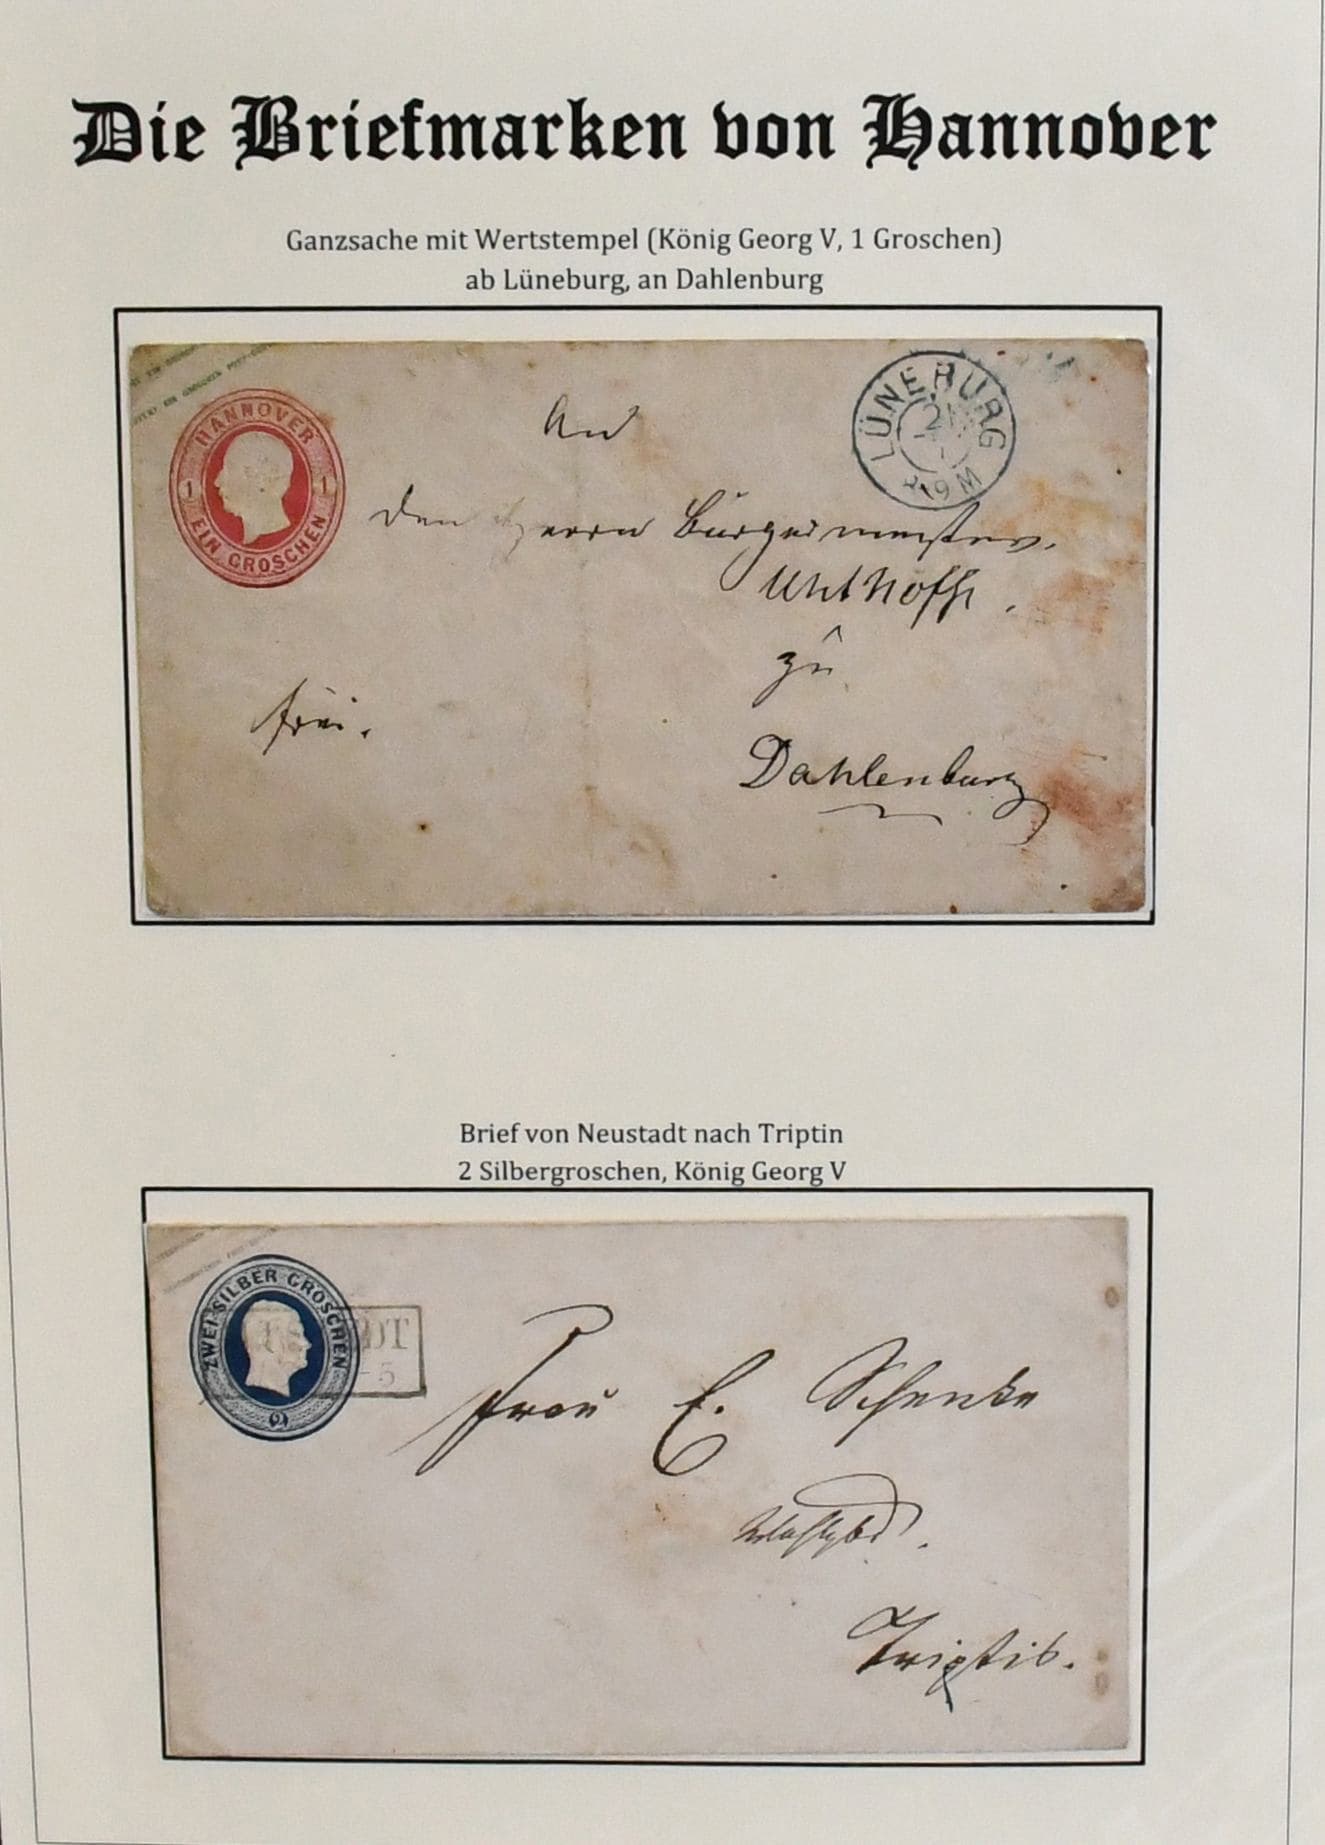 Die Briefmarken von Hannover
Ganzsache mit Wertstempel (König Georg V, 1 Groschen)
ab Lüneburg, an Dahlenburg
HANNOVER
1 1
EIN GROSCHEN
LÜNEBURG
An
den Herrn Bürgermeister
Uhthoff
zu
frei.
Dahlenburg
Brief von Neustadt nach Triptin
2 Silbergroschen, König Georg V
ZWEI SILBER GROSCHEN
2
DT
5
Frau E. Schenke
Triptis.